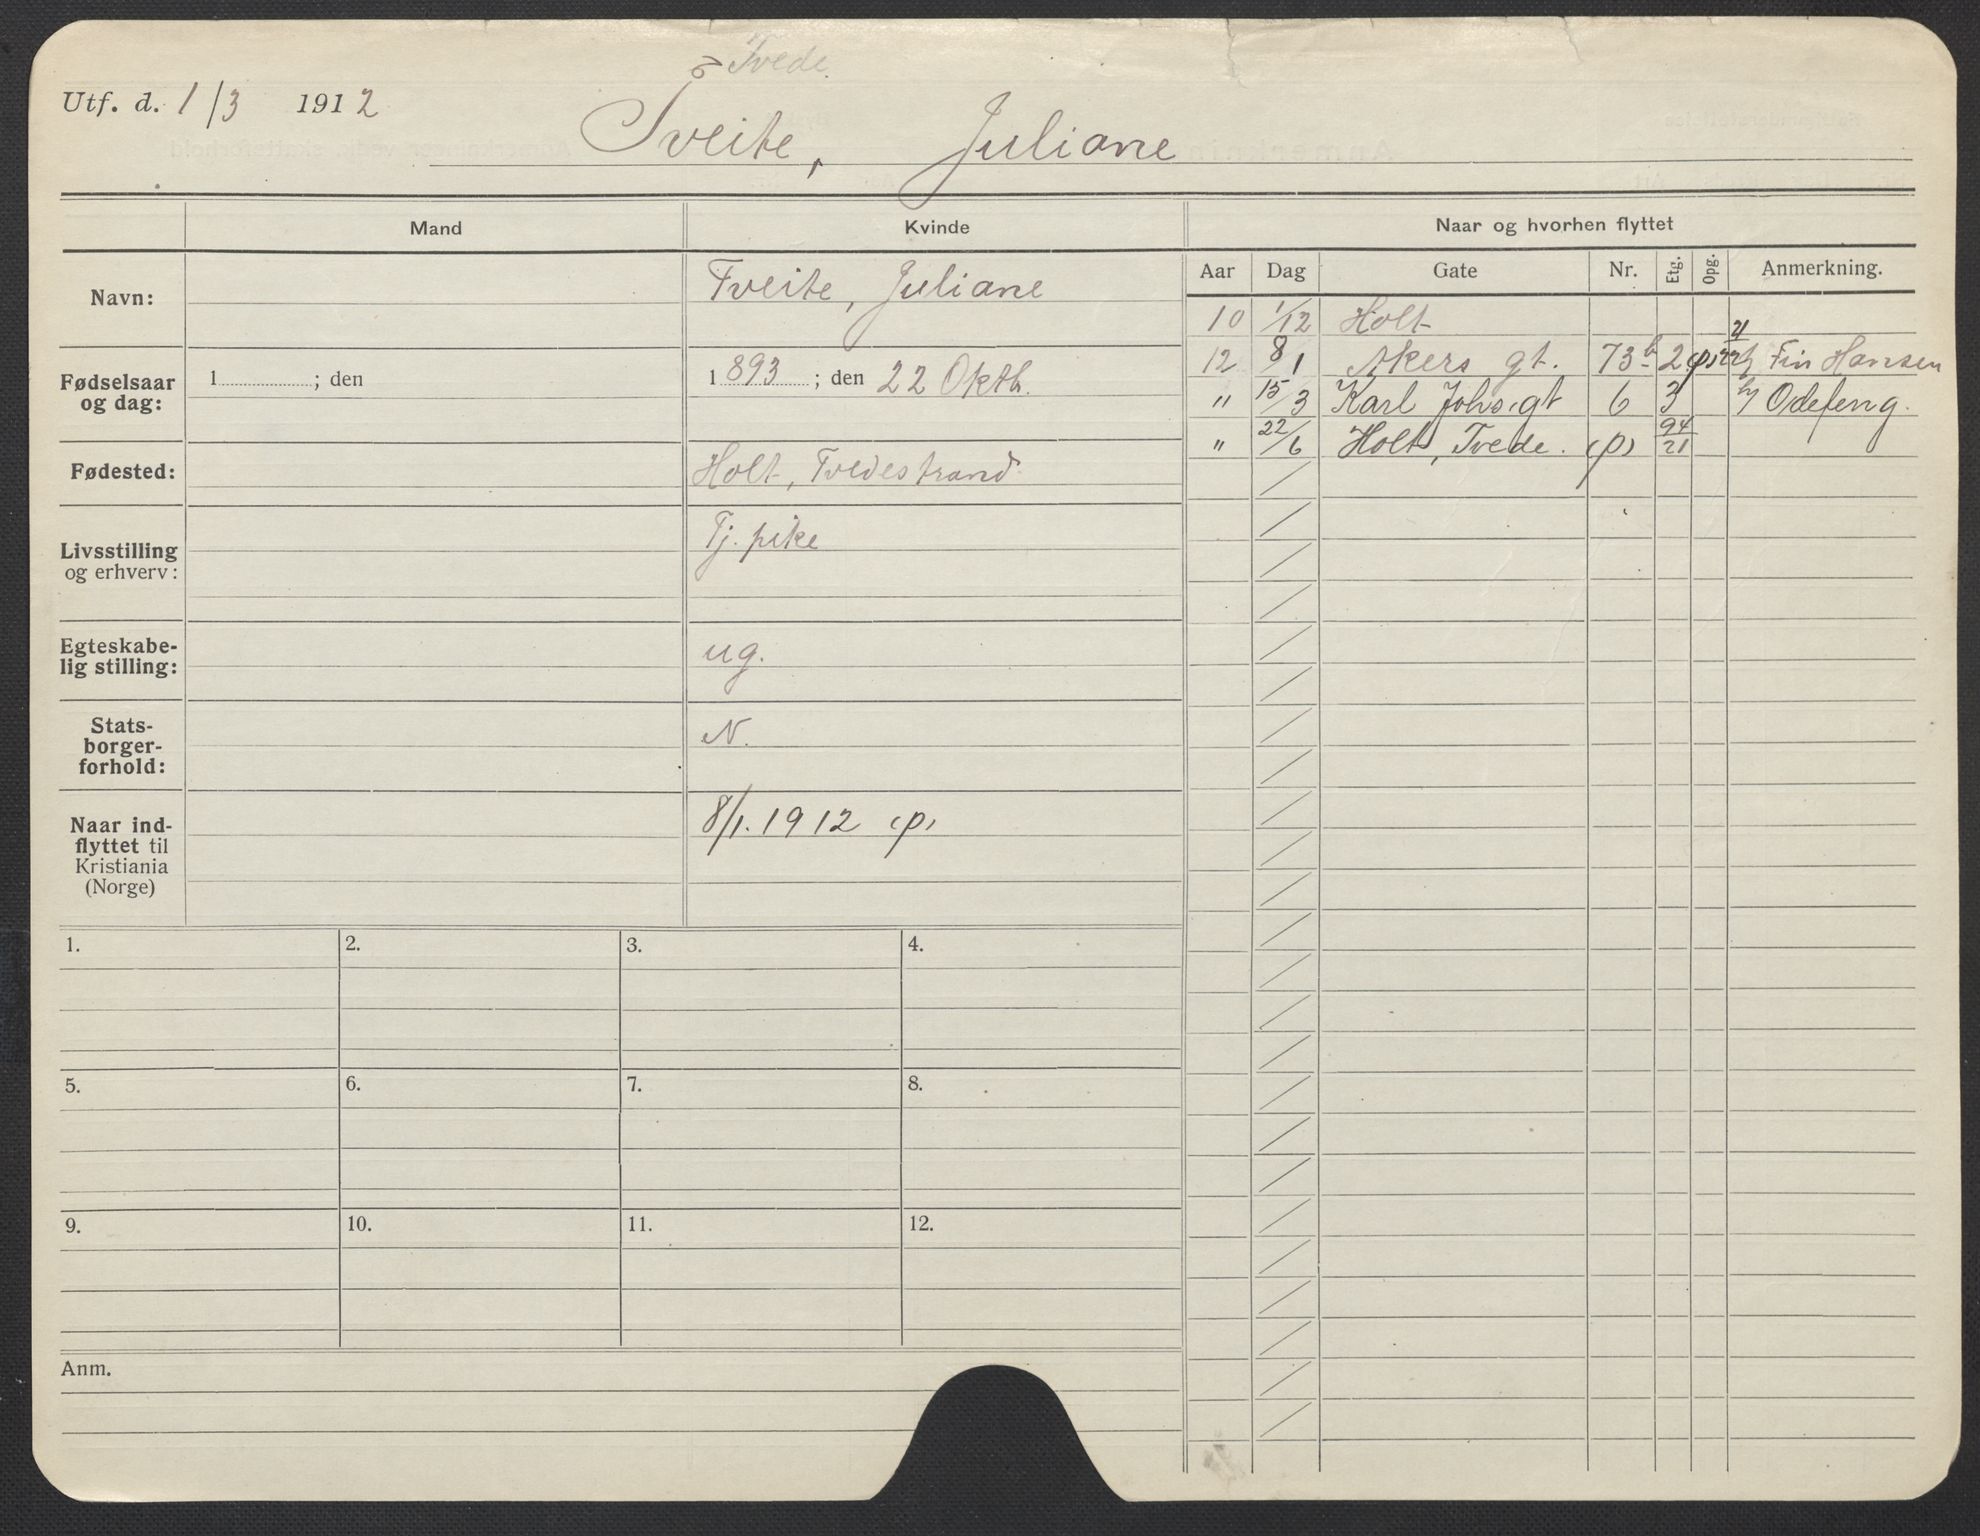 Tvede.
Utf. d. 1/3 1912
Tveite, Juliane
Mand Kvinde Naar og hvorhen flyttet
Aar Dag Gate Nr. Etg. Opg. Anmerkning.
Navn: Tveite, Juliane
Fødselsaar og dag: 1 ; den
1893 ; den 22 Oktb.
Fødested: Holt, Tvedestrand
Livsstilling og erhverv: Tj. pike
Egteskabelig stilling: ug.
Statsborgerforhold: N.
Naar indflyttet til Kristiania (Norge) 8/1. 1912 (p)
10 1/12 Holt
12 8/1 Akers gt. 73b 2 (p) Fin Hansen
" 15/3 Karl Johs. gt 6 3
" 22/6 Holt, Tvede. (p) 94/21
1. 2. 3. 4.
5. 6. 7. 8.
9. 10. 11. 12.
Anm.